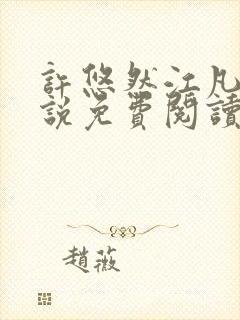 許悠然江凡
說免費閱讀
趙薇